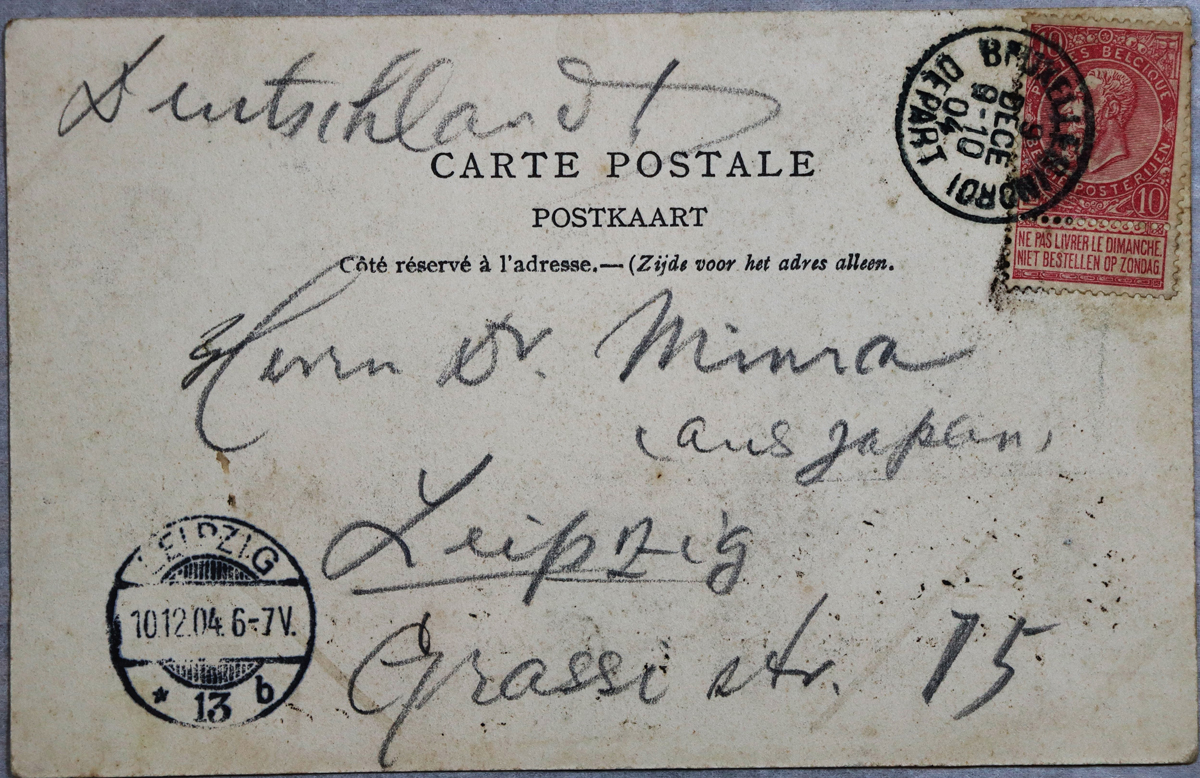 Deutschland
CARTE POSTALE
POSTKAART
Côté réservé à l'adresse.—(Zijde voor het adres alleen.
BRUXELLES (NORD)
9
DECE
9-10
04
DEPART
10
BELGIQUE
POSTERIJEN
10
NE PAS LIVRER LE DIMANCHE
NIET BESTELLEN OP ZONDAG
Herrn Dr. Miura
(aus Japan)
Leipzig
Grassi str. 15
LEIPZIG
10.12.04. 6-7V.
* 13 b